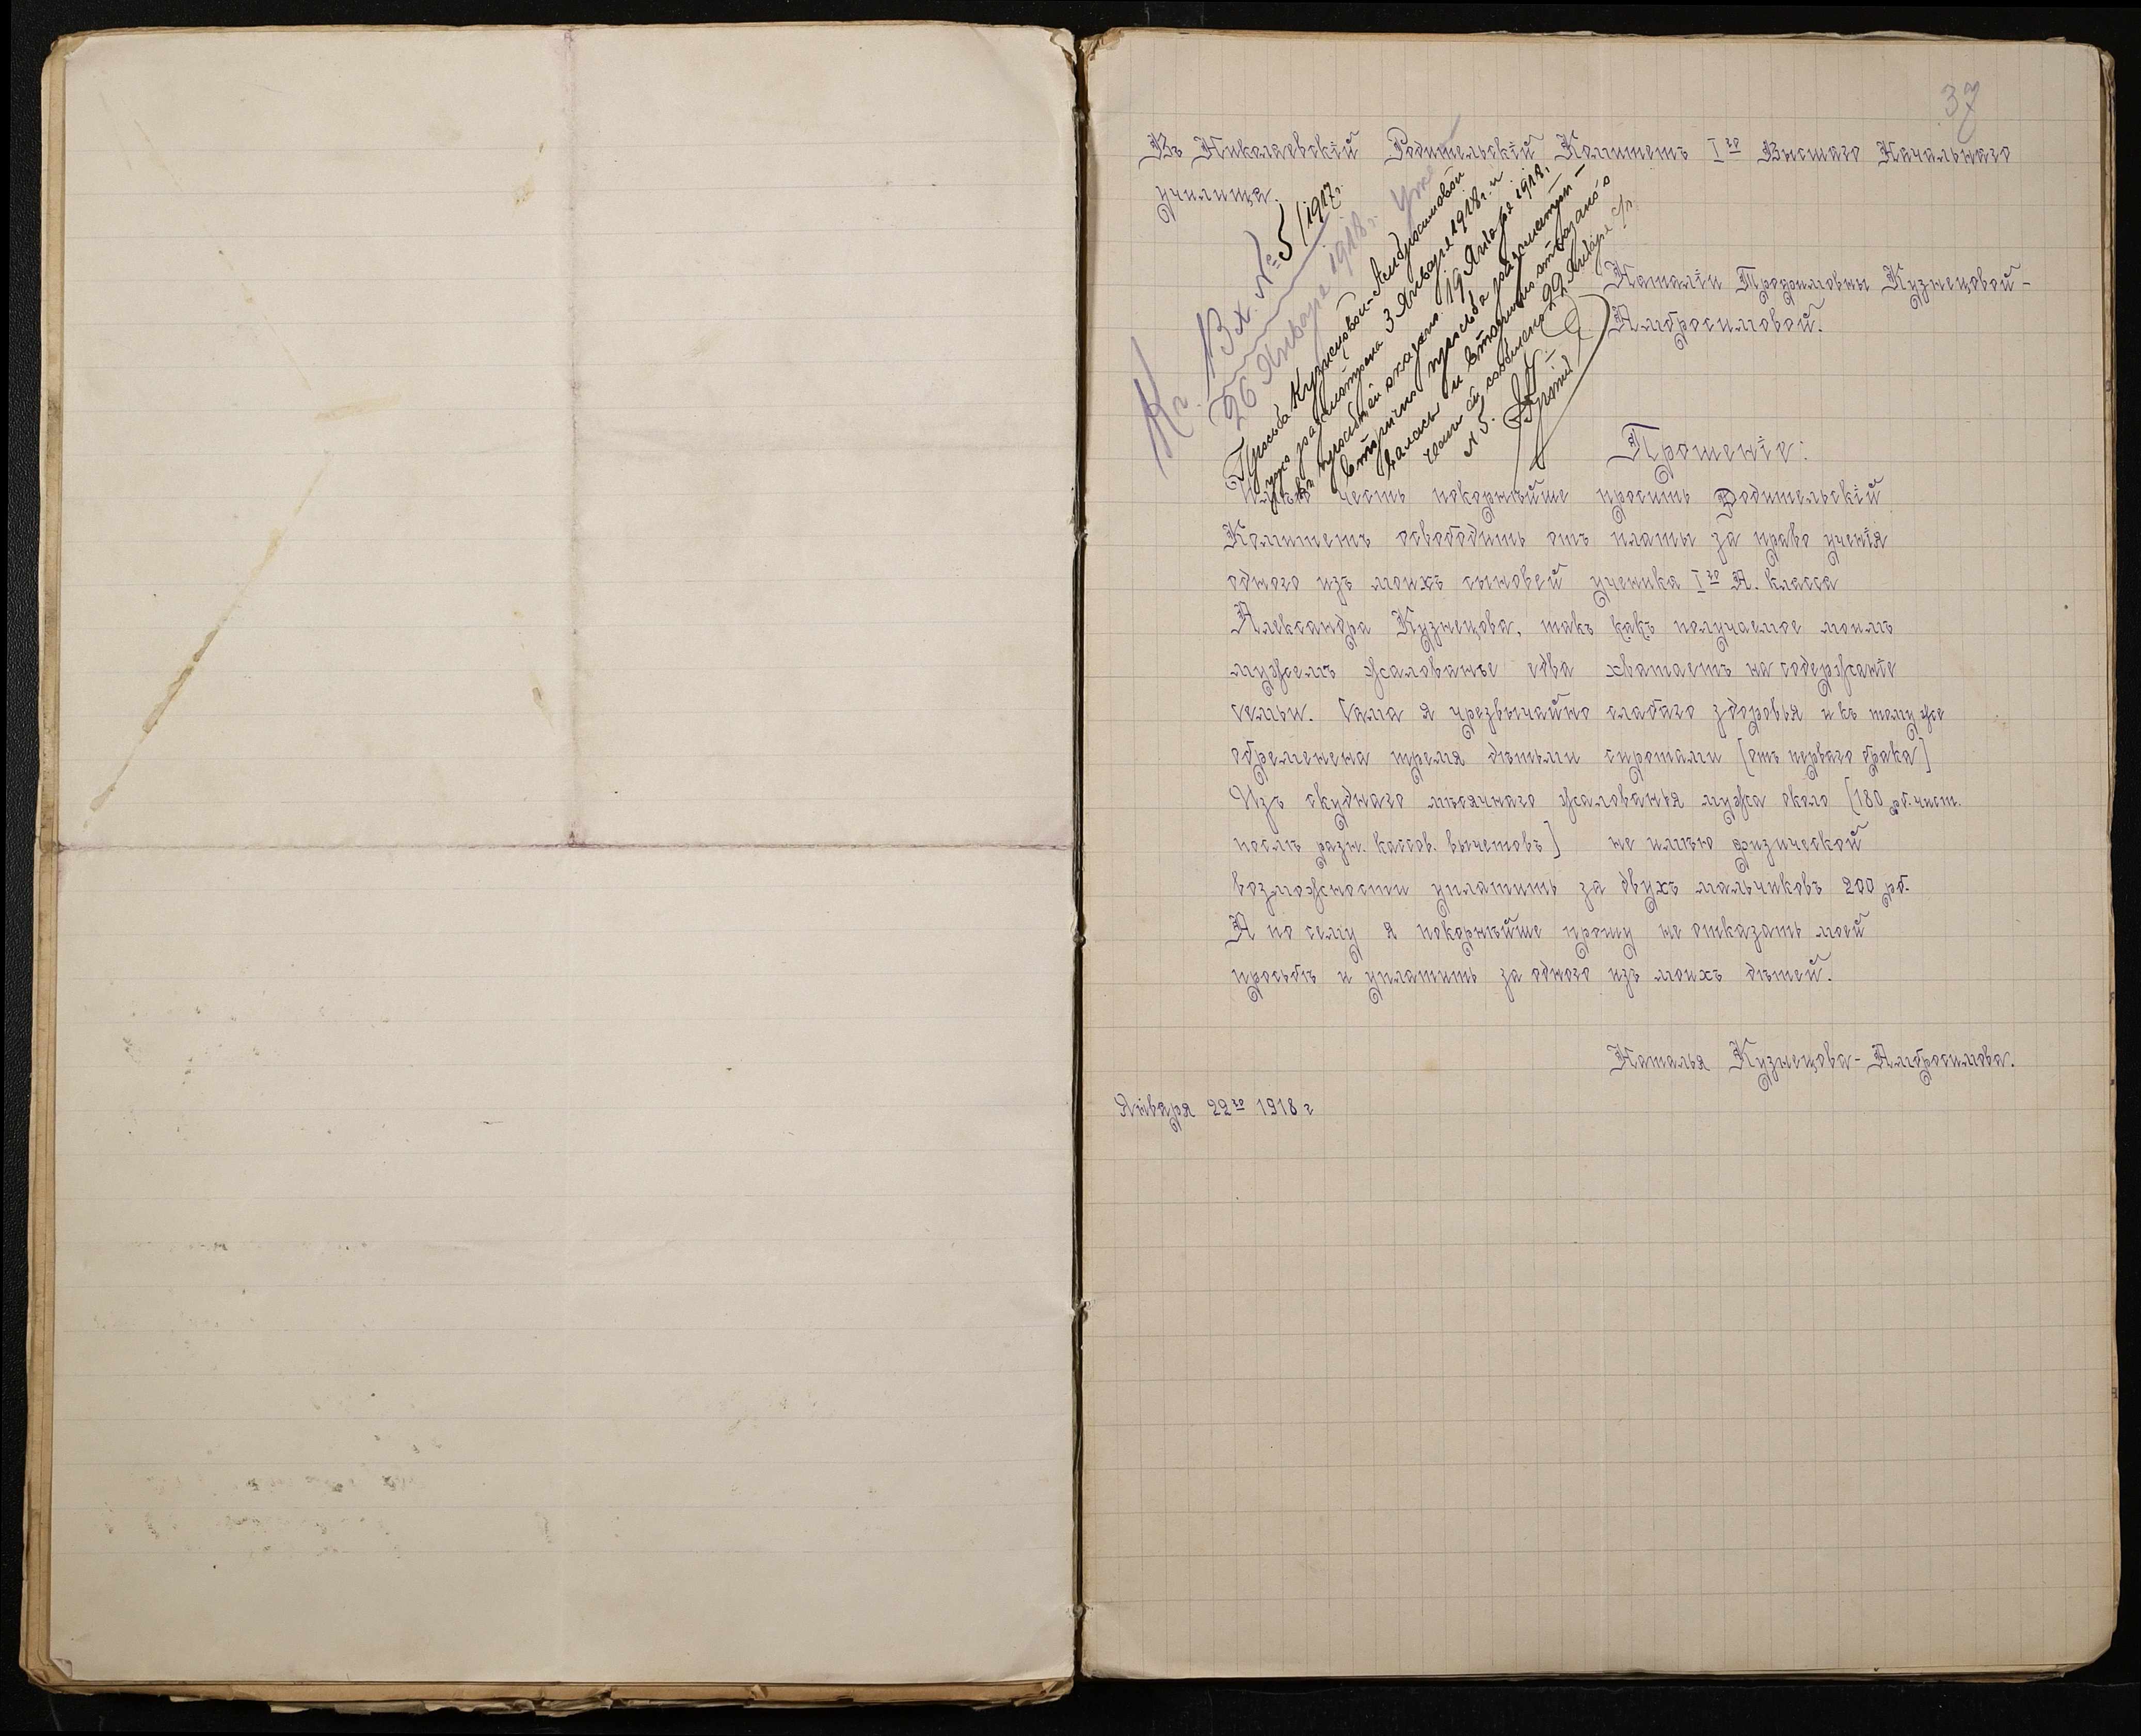 37
Въ Николаевскій Родительскій Комитетъ Iго Высшаго Начальнаго
училища.
Наталіи Трофимовны Кузнецовой-
Амбросимовой.
Вх. №5/1917г.
26 Января 1918г. Уже
Просьба Кузнецовой-Амбросимовой
уже разсмотрена 3 Января 1918г. и
въ просьбе ей отказано. 19 Января 1918г.
вторично просьба разсматри-
валась и вторично отказано о
чемъ ей сообщено 22 Января с/г.
№ 5.
Прошеніе:
Имѣю честь покорнѣйше просить Родительскій
Комитетъ освободить отъ платы за право ученія
одного изъ моихъ сыновей ученика Iго А. класса
Александра Кузнецова, такъ какъ получаемое моимъ
мужемъ жалованье едва хватаетъ на содержаніе
семьи. Сама я чрезвычайно слабаго здоровья и къ тому же
обременена тремя дѣтьми сиротами [отъ перваго брака]
Изъ скуднаго мѣсячнаго жалованья мужа около [180 рб. чист.
послѣ разн. кассов. вычетовъ] не имѣю физической
возможности уплатить за двухъ мальчиковъ 200 рб.
А по сему я покорнѣйше прошу не отказать моей
просьбѣ и уплатить за одного изъ моихъ дѣтей.
Наталья Кузнецова-Амбросимова.
Января 22го 1918 г